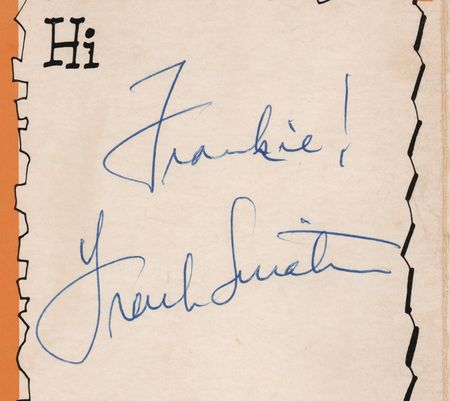 Hi
Frankie!
Frank Sinatra